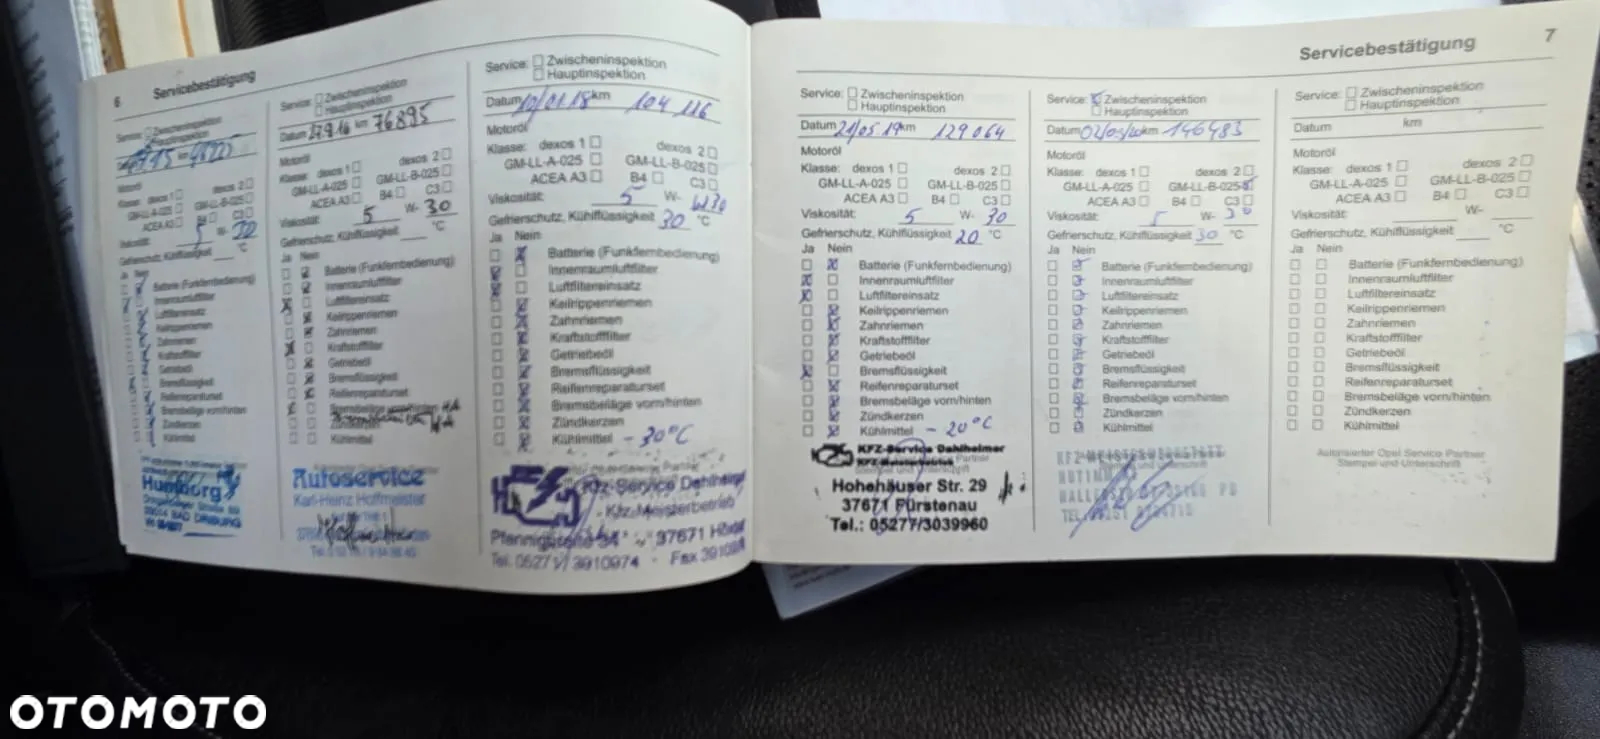 6 Servicebestätigung
Service: Zwischeninspektion
Hauptinspektion
km
Motoröl
Klasse: dexos 1 dexos 2
GM-LL-A-025 GM-LL-B-025
ACEA A3 B4 C3
Viskosität: 5 W- 30
Gefrierschutz, Kühlflüssigkeit °C
Ja Nein
Batterie (Funkfernbedienung)
Innenraumluftfilter
Luftfiltereinsatz
Keilrippenriemen
Zahnriemen
Kraftstofffilter
Getriebeöl
Bremsflüssigkeit
Reifenreparaturset
Bremsbeläge vorn/hinten
Zündkerzen
Kühlmittel
Humborg
33014 BAD DRIBURG
Service: Zwischeninspektion
Hauptinspektion
Datum 27.9.16 km 76895
Motoröl
Klasse: dexos 1 dexos 2
GM-LL-A-025 GM-LL-B-025
ACEA A3 B4 C3
Viskosität: 5 W- 30
Gefrierschutz, Kühlflüssigkeit °C
Ja Nein
Batterie (Funkfernbedienung)
Innenraumluftfilter
Luftfiltereinsatz
Keilrippenriemen
Zahnriemen
Kraftstofffilter
Getriebeöl
Bremsflüssigkeit
Reifenreparaturset
Bremsbeläge vorn/hinten
Zündkerzen
Kühlmittel
Autoservice
Karl-Heinz Hoffmeister
Service: Zwischeninspektion
Hauptinspektion
Datum 10/01.18 km 104 116
Motoröl
Klasse: dexos 1 dexos 2
GM-LL-A-025 GM-LL-B-025
ACEA A3 B4 C3
Viskosität: 5 W- W30
Gefrierschutz, Kühlflüssigkeit 30 °C
Ja Nein
Batterie (Funkfernbedienung)
Innenraumluftfilter
Luftfiltereinsatz
Keilrippenriemen
Zahnriemen
Kraftstofffilter
Getriebeöl
Bremsflüssigkeit
Reifenreparaturset
Bremsbeläge vorn/hinten
Zündkerzen
Kühlmittel - 30°C
Kfz-Service Dahlheimer
- Kfz-Meisterbetrieb
37671 Höxter
Tel. 05271/3910974 - Fax
Servicebestätigung 7
Service: Zwischeninspektion
Hauptinspektion
Datum 21/05.19 km 129 064
Motoröl
Klasse: dexos 1 dexos 2
GM-LL-A-025 GM-LL-B-025
ACEA A3 B4 C3
Viskosität: 5 W- 30
Gefrierschutz, Kühlflüssigkeit 20 °C
Ja Nein
Batterie (Funkfernbedienung)
Innenraumluftfilter
Luftfiltereinsatz
Keilrippenriemen
Zahnriemen
Kraftstofffilter
Getriebeöl
Bremsflüssigkeit
Reifenreparaturset
Bremsbeläge vorn/hinten
Zündkerzen
Kühlmittel - 20°C
KFZ-Service Dahlheimer
KFZ-Meisterbetrieb
Stempel und Unterschrift
Hohehäuser Str. 29
37671 Fürstenau
Tel.: 05277/3039960
Service: Zwischeninspektion
Hauptinspektion
Datum 02/03/20 km 146483
Motoröl
Klasse: dexos 1 dexos 2
GM-LL-A-025 GM-LL-B-025
ACEA A3 B4 C3
Viskosität: 5 W- 30
Gefrierschutz, Kühlflüssigkeit 30 °C
Ja Nein
Batterie (Funkfernbedienung)
Innenraumluftfilter
Luftfiltereinsatz
Keilrippenriemen
Zahnriemen
Kraftstofffilter
Getriebeöl
Bremsflüssigkeit
Reifenreparaturset
Bremsbeläge vorn/hinten
Zündkerzen
Kühlmittel
Service: Zwischeninspektion
Hauptinspektion
Datum km
Motoröl
Klasse: dexos 1 dexos 2
GM-LL-A-025 GM-LL-B-025
ACEA A3 B4 C3
Viskosität: W-
Gefrierschutz, Kühlflüssigkeit °C
Ja Nein
Batterie (Funkfernbedienung)
Innenraumluftfilter
Luftfiltereinsatz
Keilrippenriemen
Zahnriemen
Kraftstofffilter
Getriebeöl
Bremsflüssigkeit
Reifenreparaturset
Bremsbeläge vorn/hinten
Zündkerzen
Kühlmittel
Autorisierter Opel Service Partner
Stempel und Unterschrift
OTOMOTO